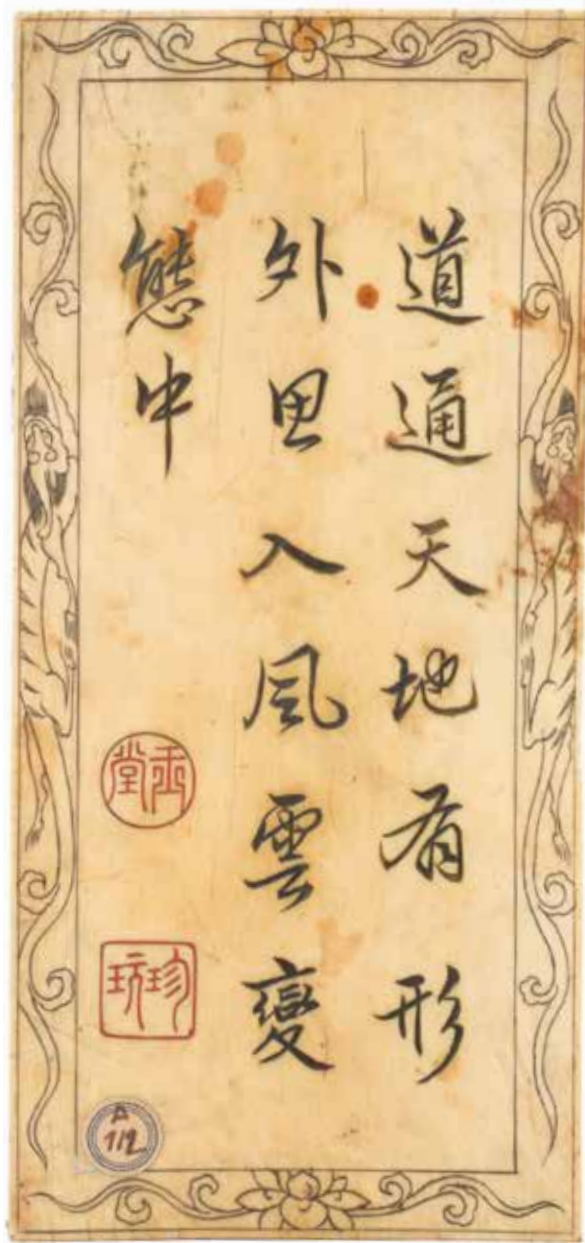 道通天地有形
外思入風雲變
態中
玉堂
珍玩
A
112